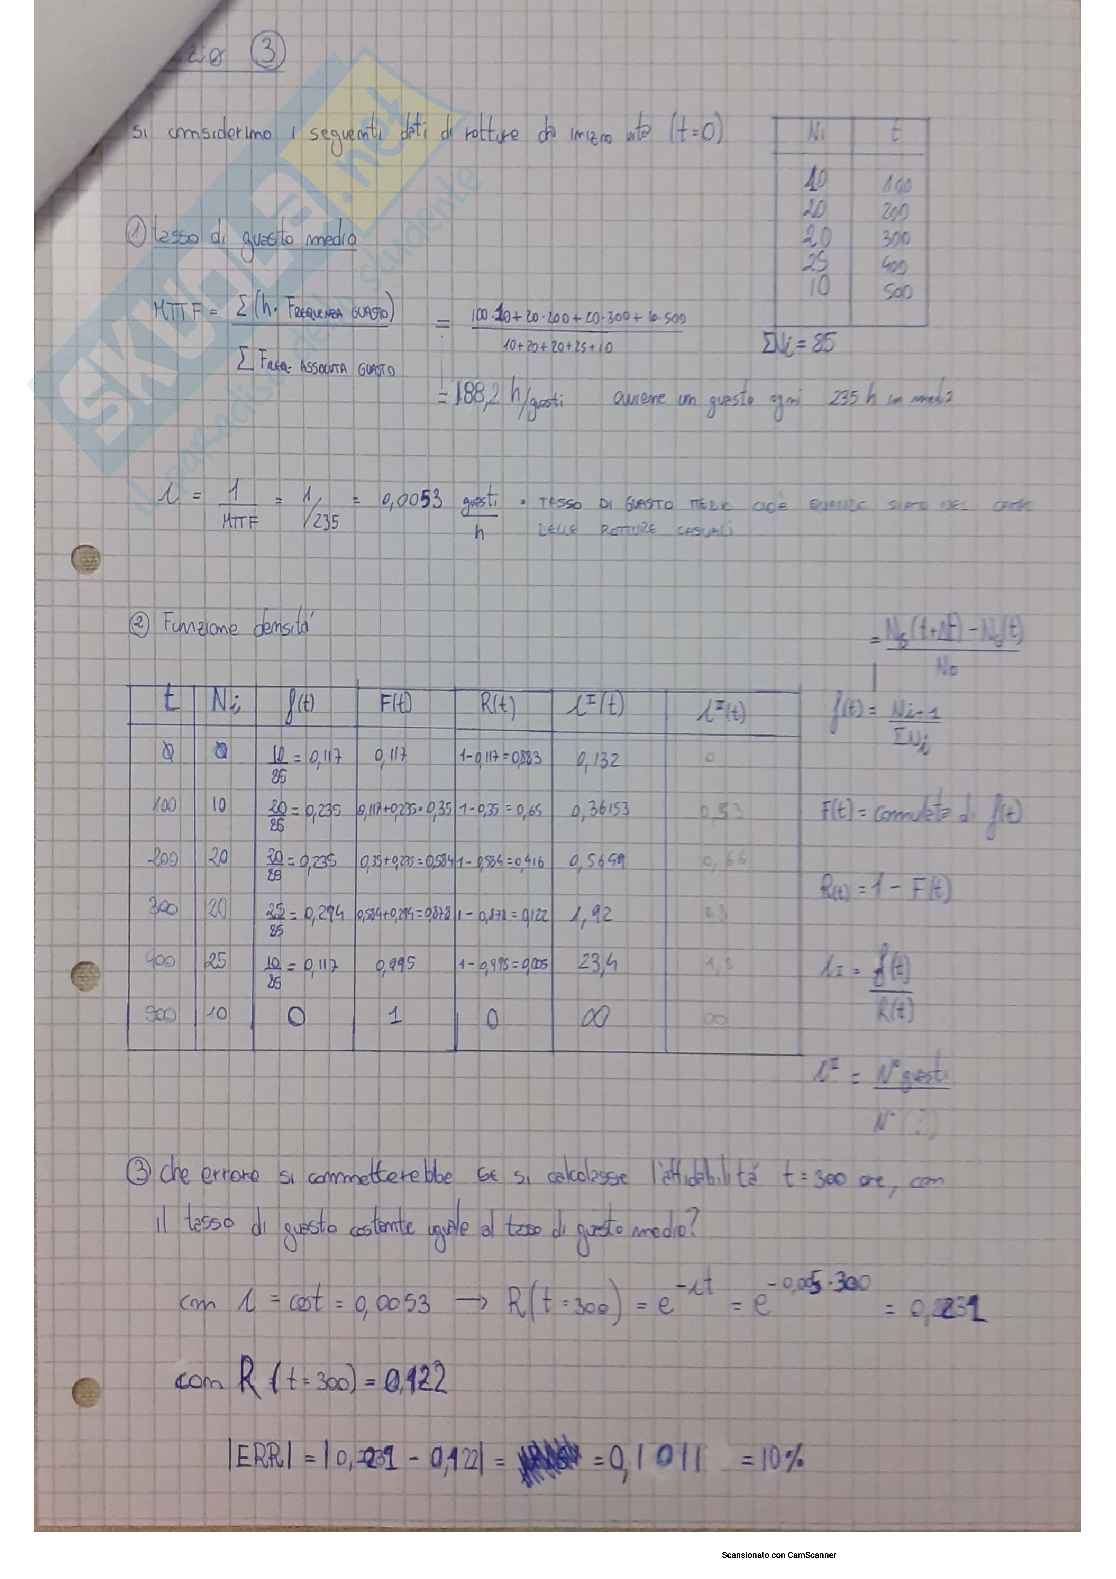 ③
si considerino i seguenti dati di rotture da inizio vita (t=0)
Ni t
10 100
20 200
20 300
25 400
10 500
ΣNi = 85
① tasso di guasto medio
MTTF = Σ(h· FREQUENZA GUASTO) / Σ FREQ. ASSOLUTA GUASTO = 100·10+20·200+20·300+10·500 / 10+20+20+25+10
= 188,2 h/guasti avviene un guasto ogni 235 h in media
λ = 1/MTTF = 1/235 = 0,0053 guasti/h · TASSO DI GUASTO MEDIO CIOÈ QUANDO SIAMO NEL CAMPO
DELLE ROTTURE CASUALI
② Funzione densità
= Ng(t+Δt) - Ng(t) / No
t Ni f(t) F(t) R(t) λᴵ(t) λᴵᴵ(t)
f(t) = Ni+1 / ΣNi
0 0 10/85 = 0,117 0,117 1-0,117=0,883 0,132 0
100 10 20/85 = 0,235 0,117+0,235=0,35 1-0,35=0,65 0,36153 0,53
F(t) = cumulata di f(t)
200 20 20/85 = 0,235 0,35+0,235=0,584 1-0,584=0,416 0,5649 0,66
R(t) = 1 - F(t)
300 20 25/85 = 0,294 0,584+0,294=0,878 1-0,878=0,122 1,92
400 25 10/85 = 0,117 0,995 1-0,995=0,005 23,4
λI = f(t) / R(t)
500 10 0 1 0 ∞ ∞
λᴵᴵ = N° guasti
③ che errore si commetterebbe se si calcolasse l'affidabilità t=300 ore, con
il tasso di guasto costante uguale al tasso di guasto medio?
con λ = cost = 0,0053 → R(t=300) = e^-λt = e^-0,005·300 = 0,2231
con R(t=300) = 0,122
|ERR| = |0,2231 - 0,122| = = 0,1011 = 10%
Scansionato con CamScanner